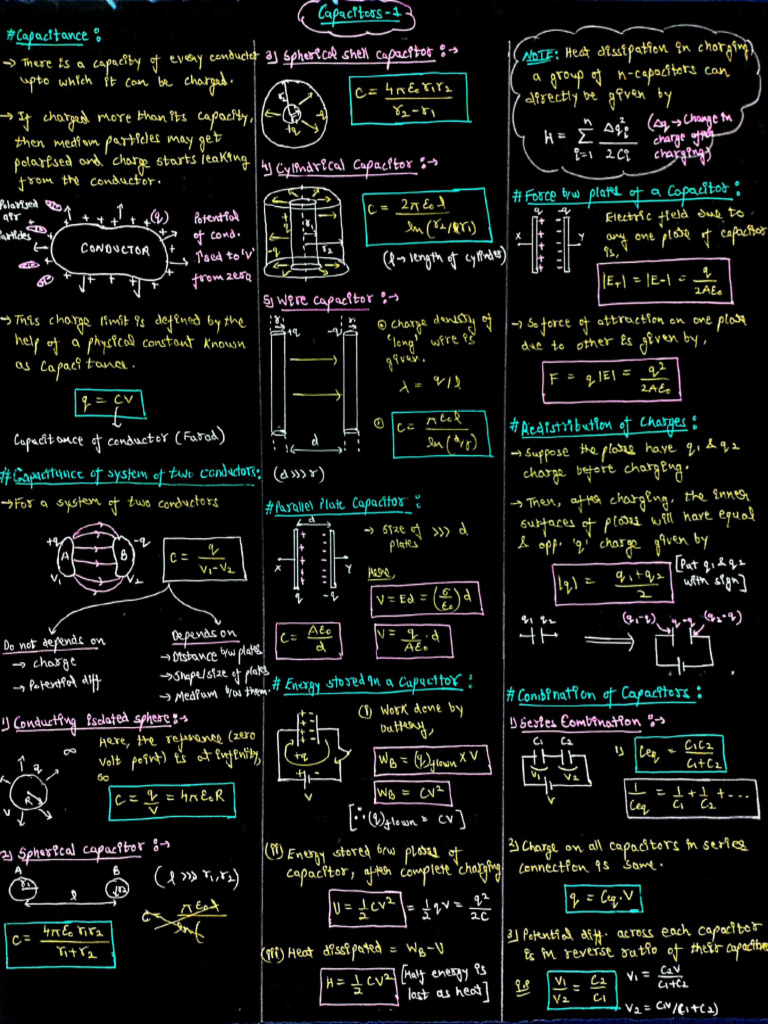 Capacitors-1
#Capacitance:
→ There is a capacity of every conductor
upto which it can be charged.
→ If charged more than its capacity,
then medium particles may get
polarised and charge starts leaking
from the conductor.
Polarised
air
particles
(q)
CONDUCTOR
Potential
of cond.
↑sed to 'V'
from zero
→ This charge limit is defined by the
help of a physical constant known
as capacitance.
q = CV
Capacitance of conductor (Farad)
#Capacitance of system of two conductors:
→ For a system of two conductors
+q A B -q
V1 V2
C = q/(V1-V2)
Do not depends on
→ charge
→ Potential diff
Depends on
→ Distance b/w plates
→ Shape/size of plates
→ Medium b/w them.
1) Conducting isolated sphere:→
∞
R
Here, the reference (zero
volt point) is at infinity,
∞
C = q/V = 4πε0R
2) Spherical capacitor:→
A B
r1 r2
l
(l >>> r1,r2)
C = 4πε0r1r2/(r1+r2)
3) Spherical shell capacitor:→
C = 4πε0r1r2/(r2-r1)
4) Cylindrical Capacitor:→
C = 2πε0l/ln(r2/r1)
(l → length of cylinder)
5) Wire capacitor:→
+q -q
d
(d>>>r)
charge density of
'long' wire is
given.
λ = q/l
C = πε0l/ln(d/r)
#Parallel Plate Capacitor:
d
X Y
q -q
→ size of plates >>> d
Here,
V = Ed = (σ/ε0)d
C = Aε0/d
V = q/Aε0 . d
# Energy stored in a Capacitor:
+q
V
(i) Work done by
battery,
WB = (q)flown × V
WB = CV²
[∵ (q)flown = CV]
(ii) Energy stored b/w plates of
capacitor, after complete charging
U = 1/2 CV² = 1/2 qV = q²/2C
(iii) Heat dissipated = WB-U
H = 1/2 CV² [Half energy is
lost as heat]
NOTE: Heat dissipation in charging
a group of n-capacitors can
directly be given by
H = Σ(i=1 to n) Δqi²/2Ci (Δq → Change in
charge after
charging)
#Force b/w plates of a Capacitor:
X Y
q -q
Electric field due to
any one plate of capacitor
is,
|E+| = |E-| = q/2Aε0
→ So force of attraction on one plate
due to other is given by,
F = q|E| = q²/2Aε0
#Redistribution of Charges:
→ Suppose the plates have q1 & q2
charge before charging.
→ Then, after charging, the inner
surfaces of plates will have equal
& opp. 'q' charge given by
|q| = (q1+q2)/2 [Put q1 & q2
with sign]
q1 q2
(q1-q) q -q (q2-q)
#Combination of Capacitors:
1) Series Combination:→
C1 C2
V1 V2
V
1) Ceq = C1C2/(C1+C2)
1/Ceq = 1/C1 + 1/C2 + ...
2) Charge on all capacitors in series
connection is same.
q = Ceq.V
3) Potential diff. across each capacitor
is in reverse ratio of their capacitance
V1/V2 = C2/C1
V1 = C2V/(C1+C2)
V2 = C1V/(C1+C2)